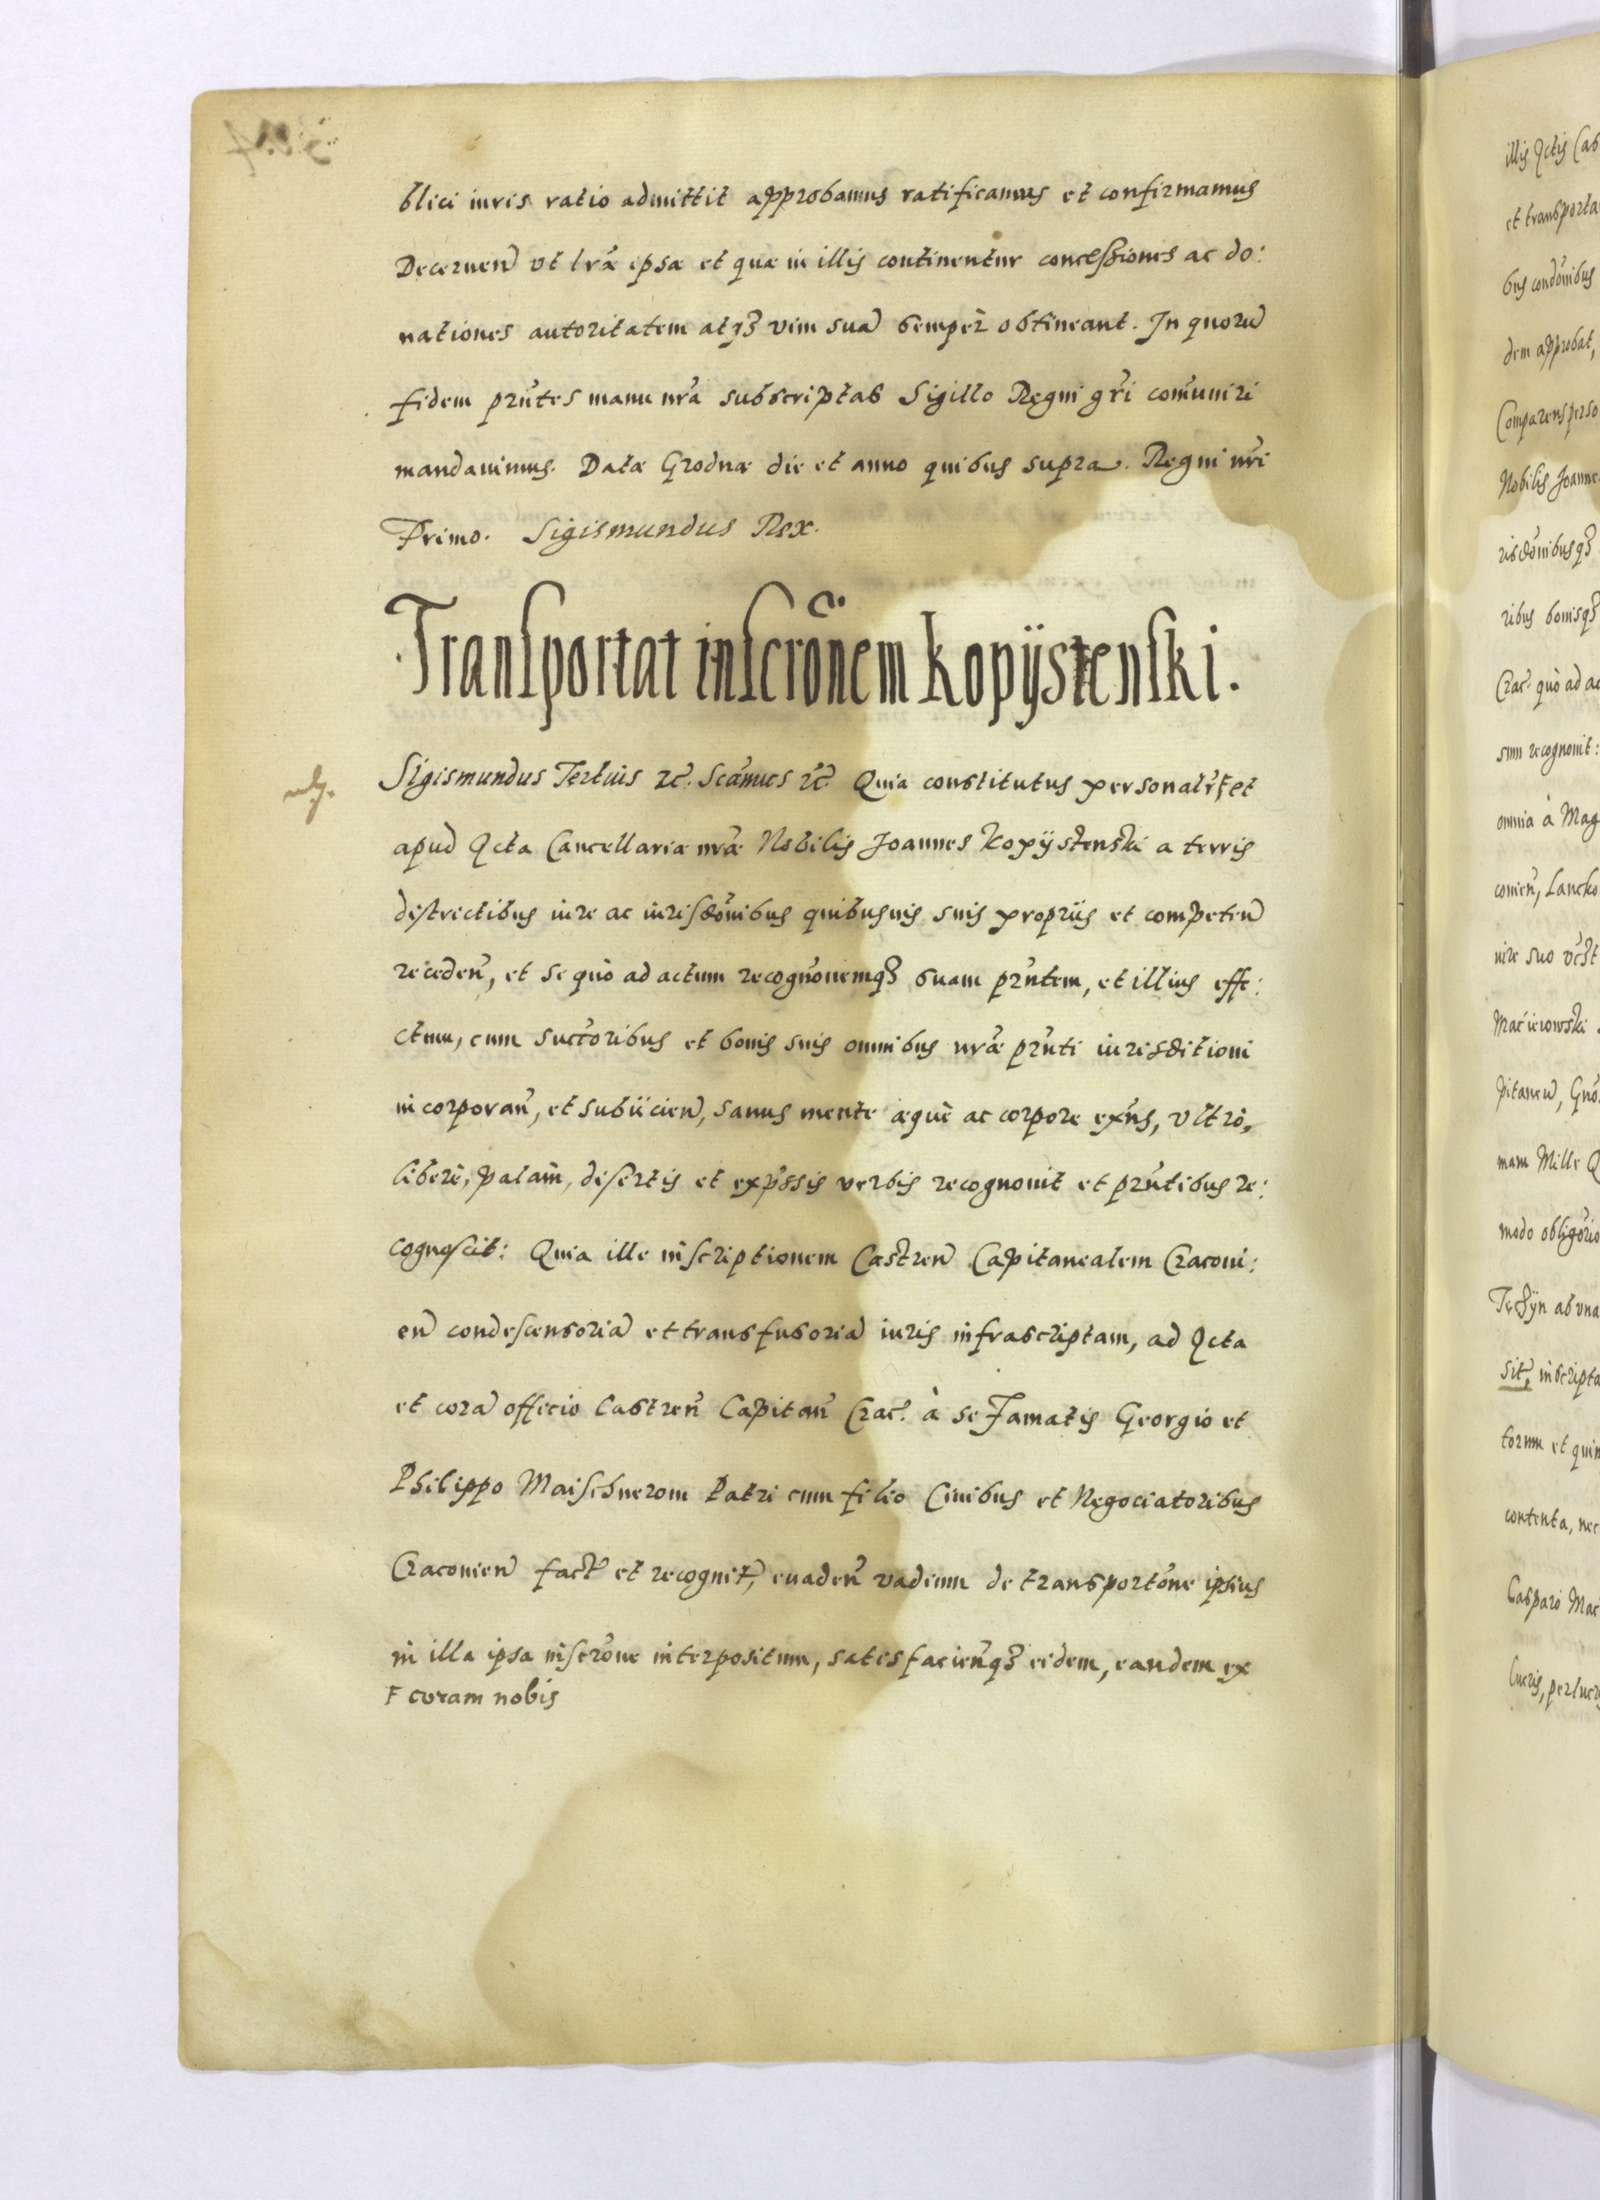 blici iuris ratio admittit approbamus ratificamus et confirmamus
Decernen̄ vt lr̃æ ipsæ et quæ in illis continentur concessiones ac do:
nationes autoritatem atqȝ vim suā semper obtineant. In quorū
fidem prñtes manu nr̃a subscriptas Sigillo Regni nr̃i com̃uniri
mandauimus. Datæ Grodnæ die et anno quibus supra. Regni nr̃i
Primo. Sigismundus Rex.
Transportat inscrõnem Kopÿstenski.
Sigismundus Tertius etc̃. Scãmus etc̃ Quia constitutus personalr̃ Ŧ et
apud Acta Cancellariæ nr̃æ Nobilis Joannes Kopÿstenski a terris
districtibus iure ac iurisdõnibus quibusuis suis proprijs et competen̄
receden̄, et se quò ad actum recognõnemqȝ suam prñtem, et illius effe:
ctum, cum succ̃oribus et bonis suis omnibus nr̃æ prñti iurisditioni
incorporan̄, et subijcien̄, sanus mente æquè ac corpore exñs, vltrò,
liberè, palàm, disertis et exp̃ssis verbis recognouit et prñtibus re:
cognoscit: Quia ille inscriptionem Castren̄ Capitanealem Craconi:
en̄ condescensoriā et transfusoriā iuris infrascriptam, ad Acta
et corā officio Castren̄ Capitan̄ Crac̃. à se Famatis Georgio et
Philippo Maischnerom Patri cum filio Ciuibus et Negociatoribus
Cracouien̄ fact̃ et recognit̃, euaden̄ vadium de transportõne ipsius
in illa ipsa inscrõne interpositum, satisfacien̄qȝ eidem, eandem ex
Ŧ coram nobis
illis Actis Cas
et transporta
bus condõnibus
dem approbat,
Comparens perso
Nobilis Joanne
risdõnibusqȝ
ribus bonisqȝ
Crac̃. quò ad ac
sum recognouit:
omnia à Mag
conien̄, Lancko
iure suo
Macieiowski
pitaneū,
mam Mille
modo
ab vna
sit, inscripta
torum et quin
contenta, nec
Casparo Mac
lucris, per lucr